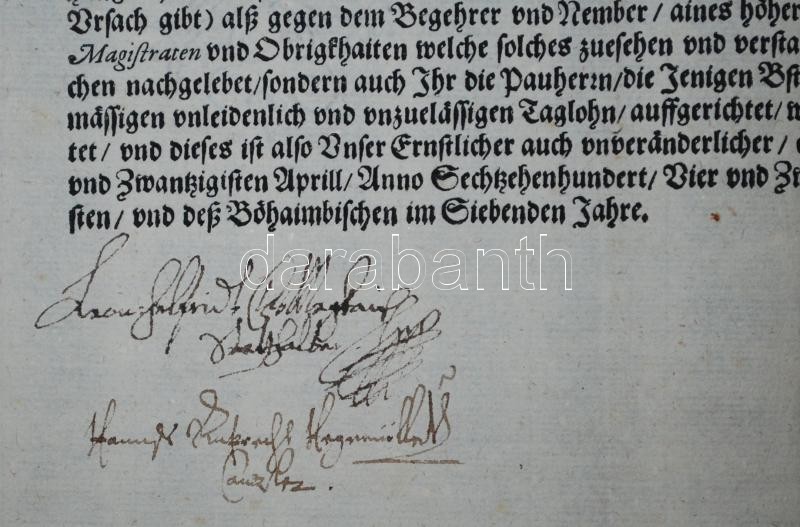 Vrsach gibt) alß gegen dem Begehrer vnd Nember / aines höher
Magistraten vnd Obrigkhaiten welche solches zuesehen vnd versta
chen nachgelebet/sondern auch Ihr die Pauherrn/die Jenigen Bst
mässigen vnleidenlich vnd vnzuelässigen Taglohn/ auffgerichtet/
tet/ vnd dieses ist also Vnser Ernstlicher auch vnveränderlicher /
vnd Zwantzigisten Aprill/ Anno Sechtzehenhundert/ Vier vnd Zw
sten/ vnd deß Böhaimbischen im Siebenden Jahre.
darabanth
Hannß Ruprecht Hegenmüller
Canzler.